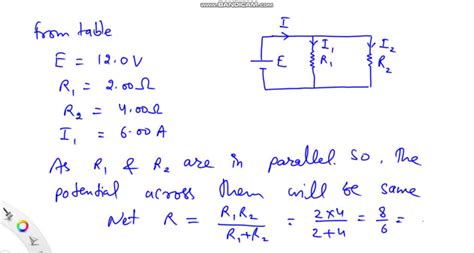 www.BANDICAM.com
from table
E = 12.0V
R₁ = 2.00Ω
R₂ = 4.00Ω
I₁ = 6.00A
I
E
I₁
R₁
I₂
R₂
As R₁ & R₂ are in parallel. So, the
potential across them will be same
Net R = R₁R₂ / R₁+R₂ = 2×4 / 2+4 = 8 / 6 =